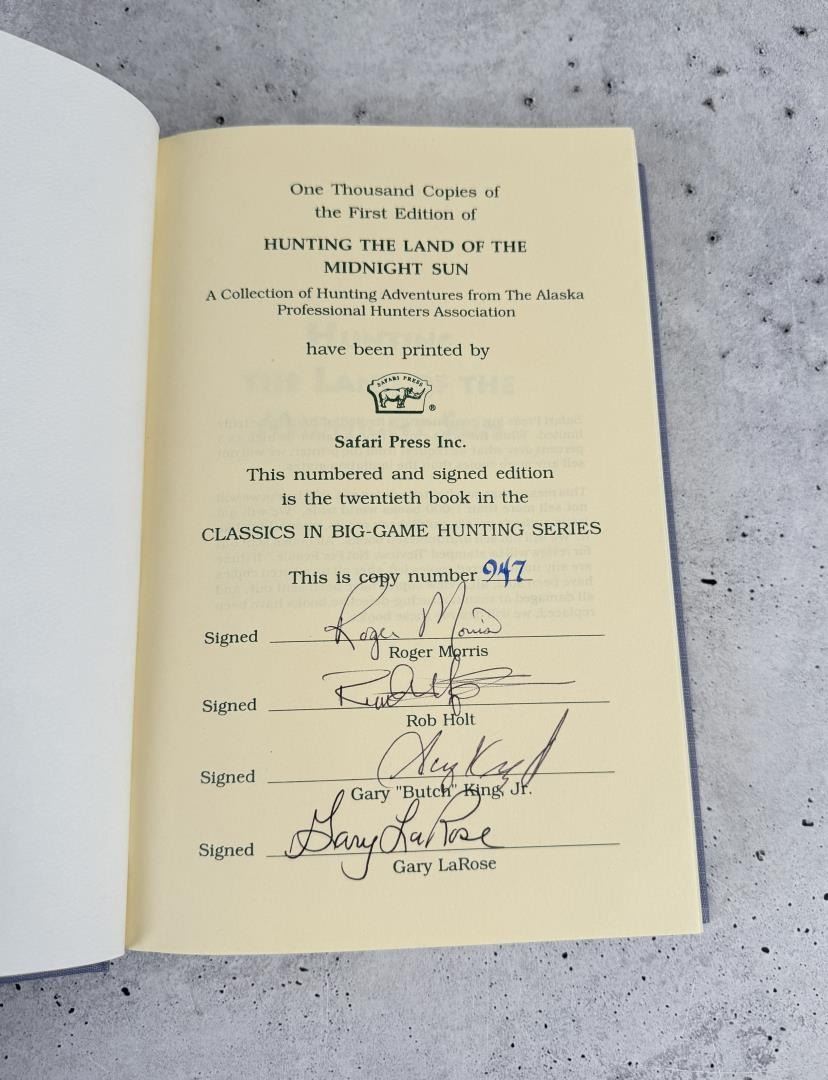 One Thousand Copies of
the First Edition of
HUNTING THE LAND OF THE
MIDNIGHT SUN
A Collection of Hunting Adventures from The Alaska
Professional Hunters Association
have been printed by
SAFARI PRESS
®
Safari Press Inc.
This numbered and signed edition
is the twentieth book in the
CLASSICS IN BIG-GAME HUNTING SERIES
This is copy number 947
Signed Roger Morris
Roger Morris
Signed
Rob Holt
Signed Gary King
Gary "Butch" King, Jr.
Signed Gary LaRose
Gary LaRose